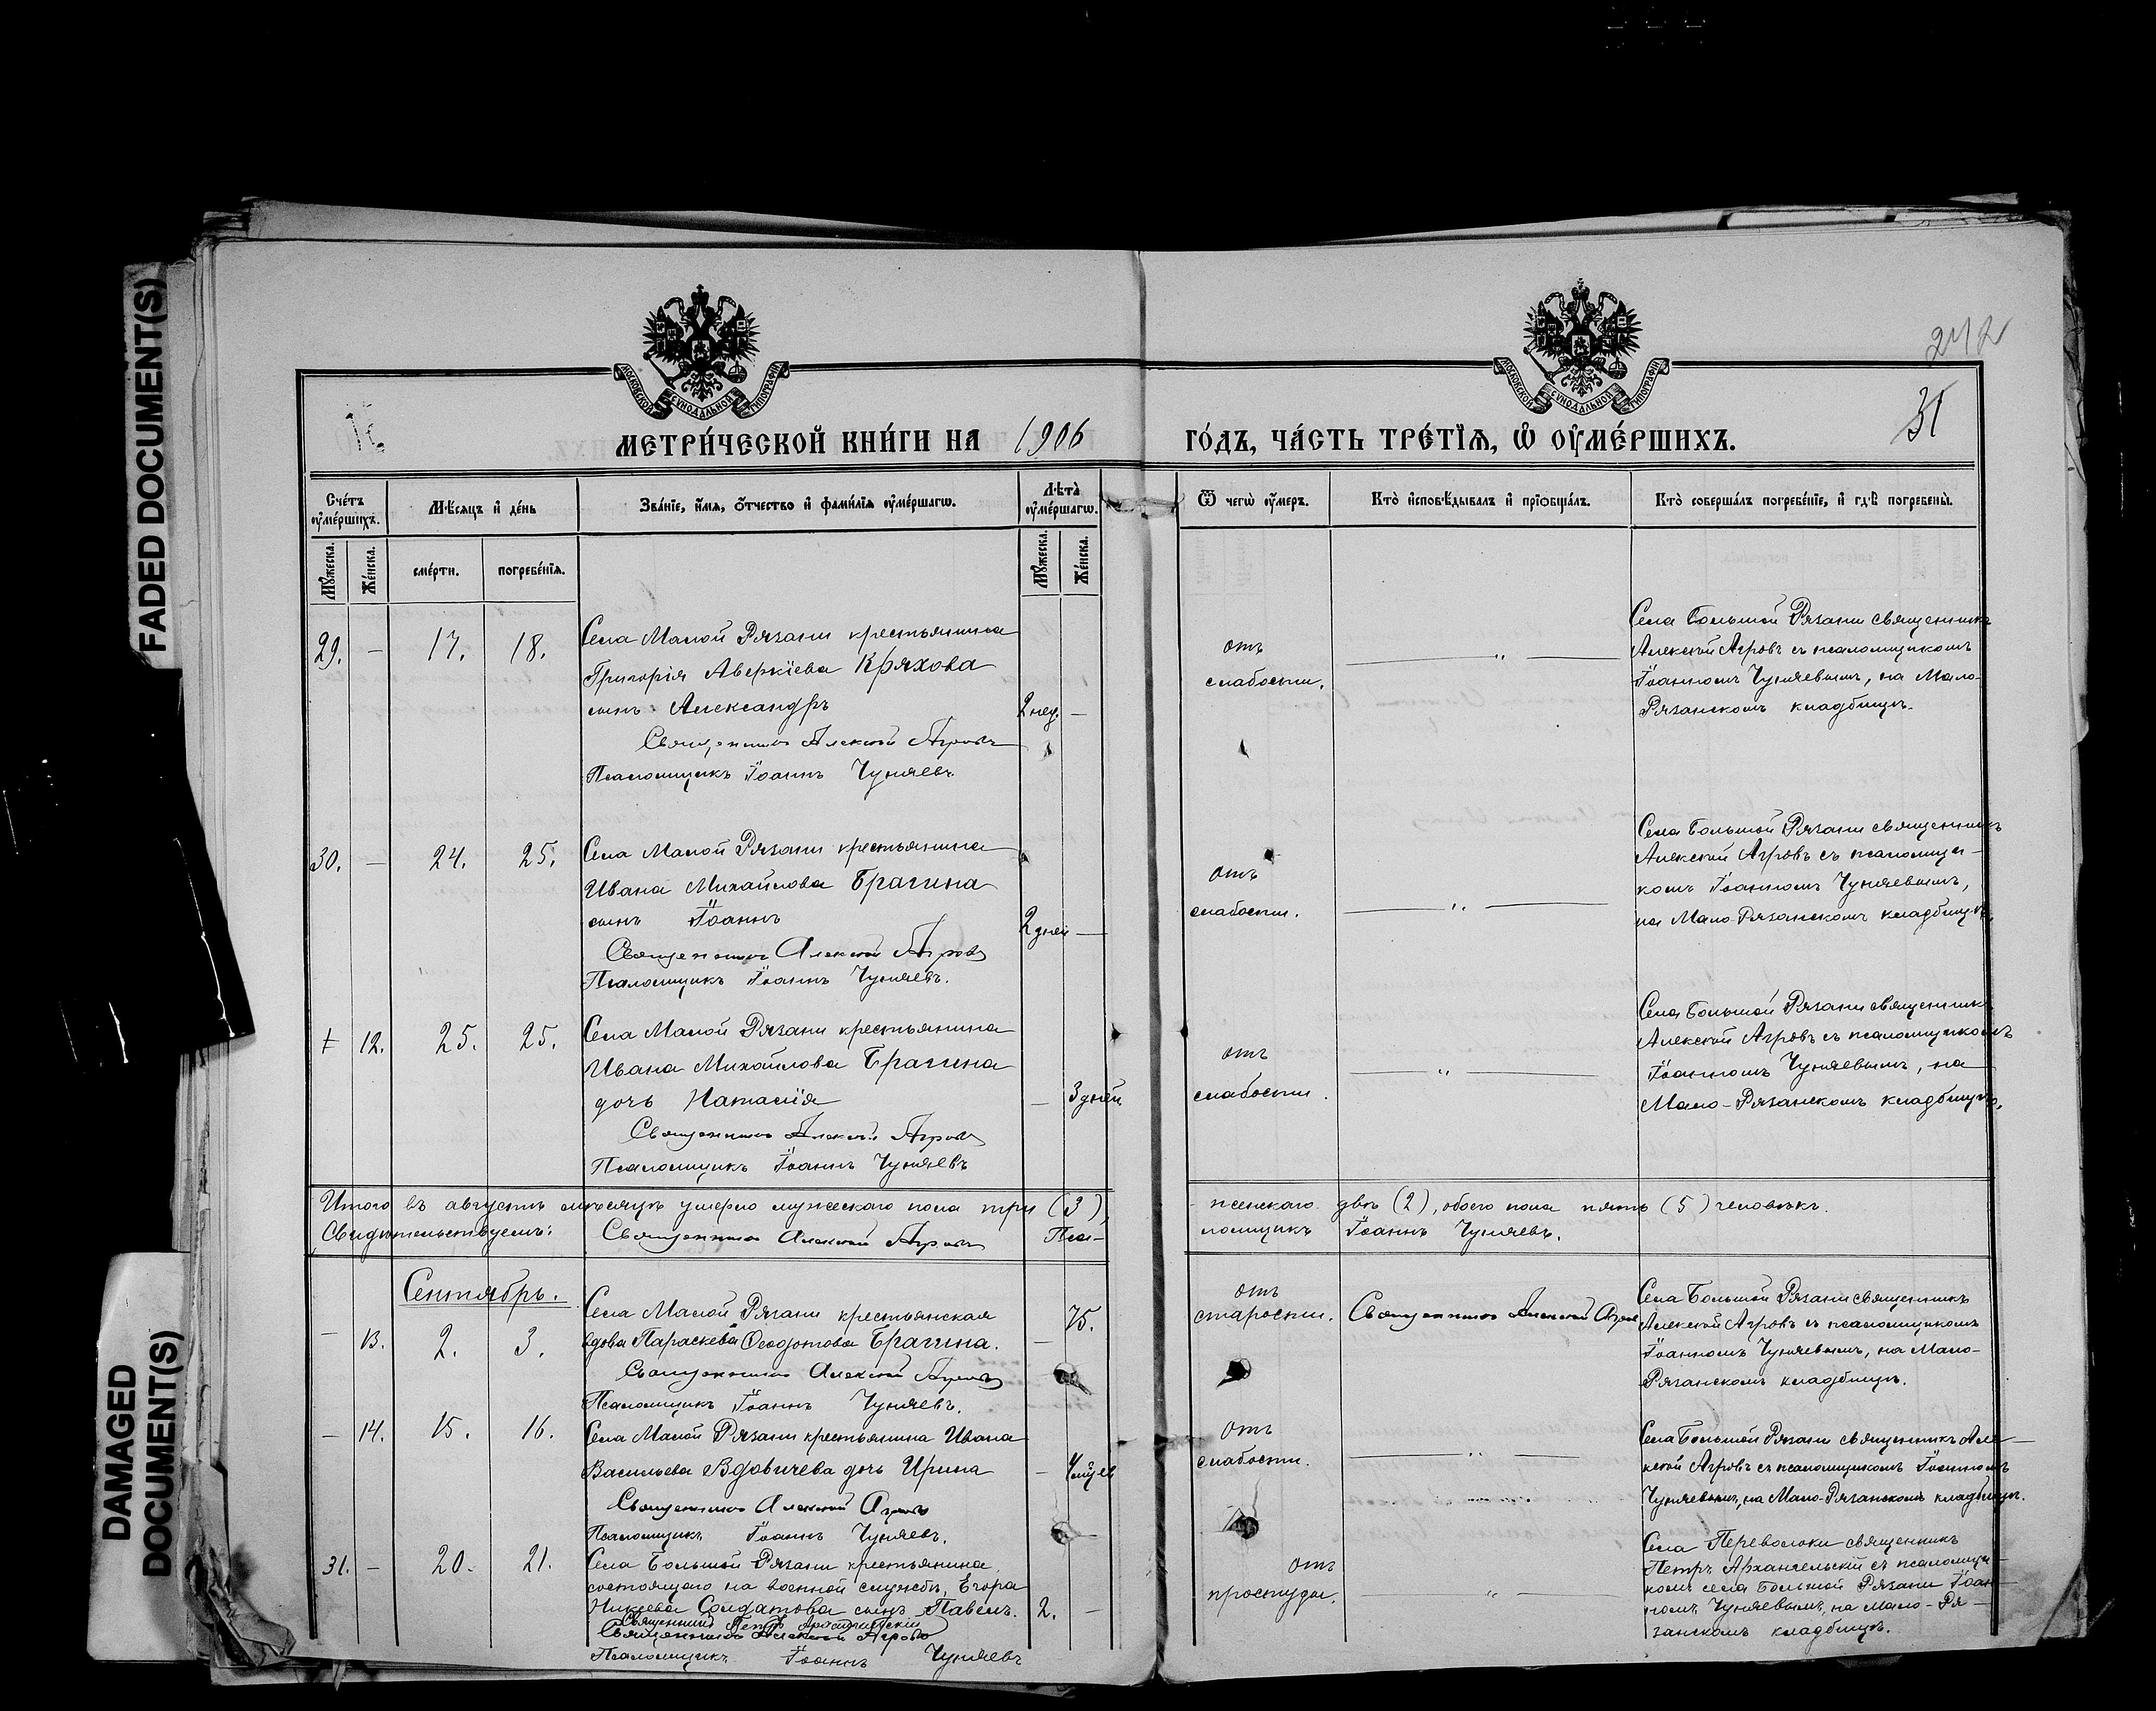 FADED DOCUMENT(S)
DAMAGED DOCUMENT(S)
242
31
МОСКОВСКОЙ СѴНОДАЛЬНОЙ ТИПОГРАФІИ
МОСКОВСКОЙ СѴНОДАЛЬНОЙ ТИПОГРАФІИ
МЕТРИ́ЧЕСКОЙ КНИ́ГИ НА 1906 ГО́ДЪ, ЧА́СТЬ ТРЕ́ТІѦ, Ѡ҆ ОУ҆МЕ́РШИХЪ.
Сче́тъ оу҆ме́ршихъ.
Мѣ́сѧцъ и҆ де́нь
Зва́нїе, и҆́мѧ, ѻ҆́тчество и҆ фами́лїѧ оу҆ме́ршагѡ.
Лѣта̀ оу҆ме́ршагѡ.
Ѿ чегѡ̀ оу҆́меръ.
Кто̀ и҆сповѣ́дывалъ и҆ прїѻбща́лъ.
Кто̀ соверша́лъ погребе́нїе, и҆ гдѣ̀ погребены̀.
Мꙋ́жеска.
Же́нска.
сме́рти.
погребе́нїѧ.
Мꙋ́жеска.
Же́нска.
29. — 17. 18.
Села Малой Рязани крестьянина
Григорія Аверкіева Кряхова
сынъ Александръ
2 нед. —
Священникъ Алексій Агровъ
Псаломщикъ Іоаннъ Чуняевъ.
отъ
слабости.
— " —
Села Большой Рязани священникъ
Алексій Агровъ съ псаломщикомъ
Іоанномъ Чуняевымъ, на Мало-
Рязанскомъ кладбищѣ.
30. — 24. 25.
Села Малой Рязани крестьянина
Ивана Михайлова Брагина
сынъ Іоаннъ
2 дней —
Священникъ Алексій Агровъ
Псаломщикъ Іоаннъ Чуняевъ.
отъ
слабости.
— " —
Села Большой Рязани священникъ
Алексій Агровъ съ псаломщи-
комъ Іоанномъ Чуняевымъ,
на Мало-Рязанскомъ кладбищѣ.
12. 25. 25.
Села Малой Рязани крестьянина
Ивана Михайлова Брагина
дочь Наталія
— 3 дней
Священникъ Алексій Агровъ
Псаломщикъ Іоаннъ Чуняевъ
отъ
слабости.
— " —
Села Большой Рязани священникъ
Алексій Агровъ съ псаломщикомъ
Іоанномъ Чуняевымъ, на
Мало-Рязанскомъ кладбищѣ.
Итого въ августѣ мѣсяцѣ умерло мужескаго пола три (3), женскаго двѣ (2), обоего пола пять (5) человѣкъ.
Свидѣтельствуемъ: Священникъ Алексій Агровъ Пса-ломщикъ Іоаннъ Чуняевъ.
Сентябрь.
— 13. 2. 3.
Села Малой Рязани крестьянская
вдова Параскева Ѳеодотова Брагина.
— 75.
Священникъ Алексій Агровъ
Псаломщикъ Іоаннъ Чуняевъ.
отъ
старости.
Священникъ Алексій Агровъ
Села Большой Рязани священникъ
Алексій Агровъ съ псаломщикомъ
Іоанномъ Чуняевымъ, на Мало-
Рязанскомъ кладбищѣ.
— 14. 15. 16.
Села Малой Рязани крестьянина Ивана
Васильева Вдовичева дочь Ирина
Священникъ Алексій Агровъ
Псаломщикъ Іоаннъ Чуняевъ.
отъ
слабости.
— " —
Села Большой Рязани священникъ Але-
ксій Агровъ съ псаломщикомъ Іоанномъ
Чуняевымъ, на Мало-Рязанскомъ кладбищѣ.
31. — 20. 21.
Села Большой Рязани крестьянина,
состоящаго на военной службѣ, Егора
Никеева Солдатова сынъ Павелъ.
2. —
Священникъ Петръ Архангельскій
Священникъ Алексій Агровъ
Псаломщикъ Іоаннъ Чуняевъ
отъ
простуды.
— " —
Села Переволоки священникъ
Петръ Архангельскій съ псаломщи-
комъ села Большой Рязани Іоан-
номъ Чуняевымъ, на Мало-Ря-
занскомъ кладбищѣ.